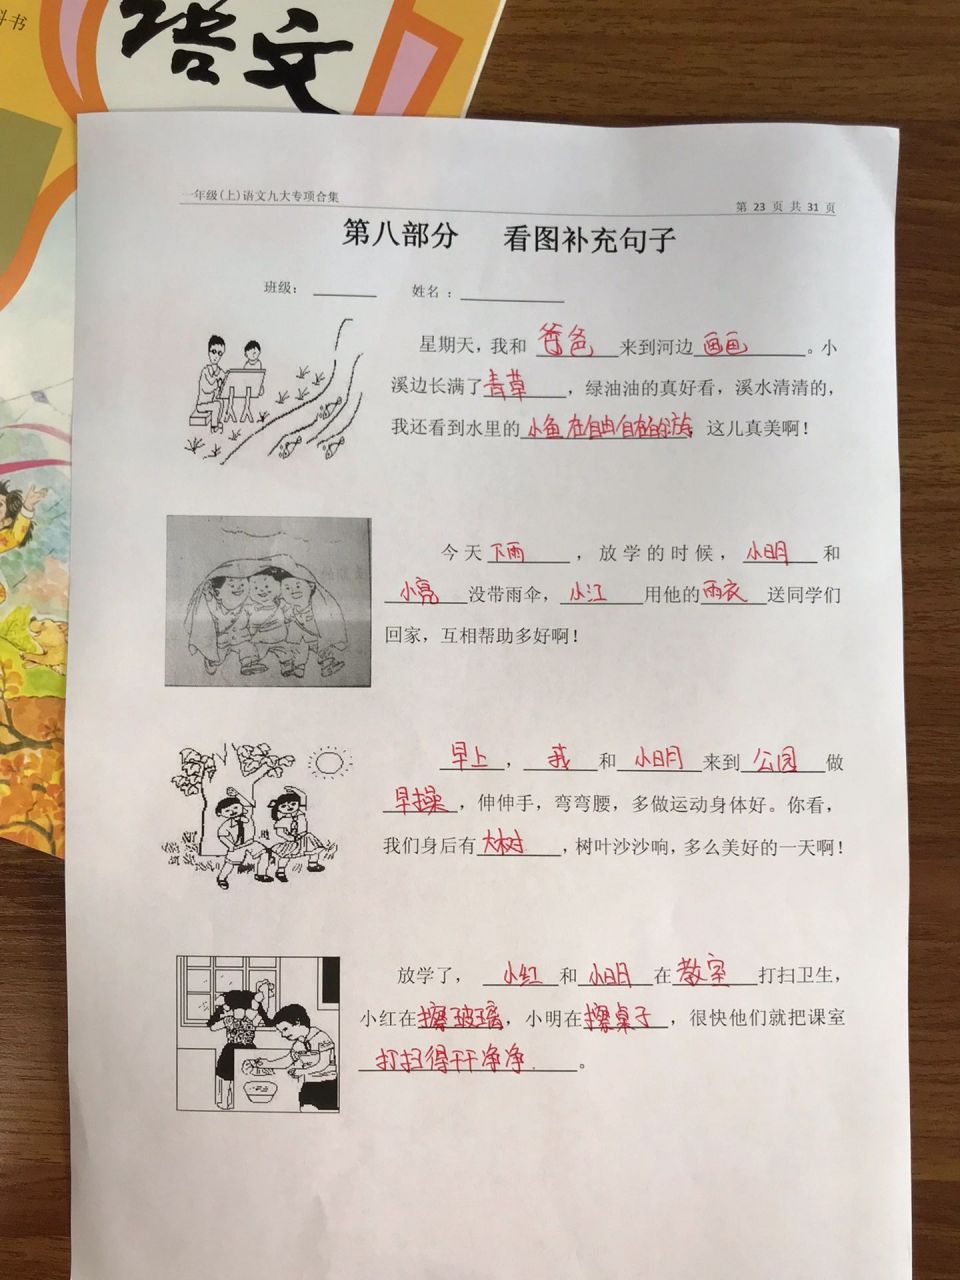 科书
语文
一年级(上)语文九大专项合集
第 23 页 共 31 页
第八部分 看图补充句子
班级： 姓名：
星期天，我和 爸爸 来到河边 画画 。小
溪边长满了青草 ，绿油油的真好看，溪水清清的，
我还看到水里的 小鱼在自由自在的游 这儿真美啊！
今天 下雨 ，放学的时候， 小明 和
小亮 没带雨伞， 小江 用他的雨衣 送同学们
回家，互相帮助多好啊！
早上 ， 我 和 小明 来到 公园 做
早操 ，伸伸手，弯弯腰，多做运动身体好。你看，
我们身后有 大树 ，树叶沙沙响，多么美好的一天啊！
放学了， 小红 和 小明 在 教室 打扫卫生，
小红在擦玻璃，小明在擦桌子 ，很快他们就把课室
打扫得干干净净 。